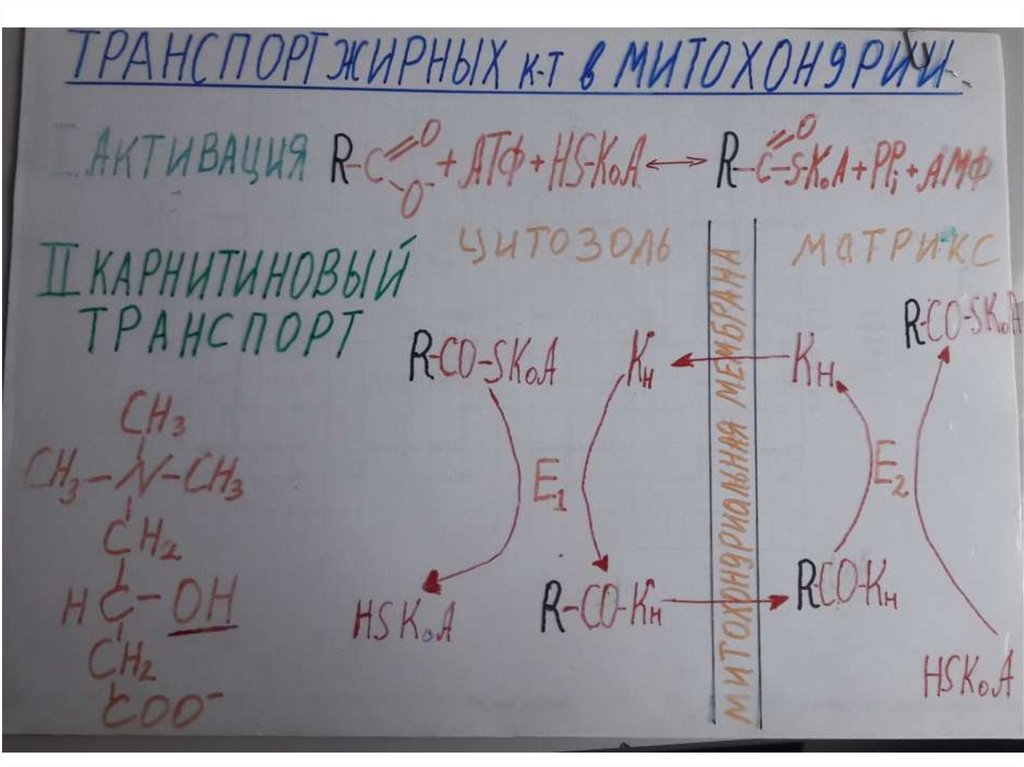 ТРАНСПОРТ ЖИРНЫХ К-Т В МИТОХОНДРИИ
I. АКТИВАЦИЯ R-C=O O⁻ + АТФ + HS-KoA ⟷ R-C=O-S-KoA + PPi + АМФ
ЦИТОЗОЛЬ
МАТРИКС
II КАРНИТИНОВЫЙ
ТРАНСПОРТ
МИТОХОНДРИАЛЬНАЯ МЕМБРАНА
R-CO-SKoA
Kн
Kн
R-CO-SKoA
E₁
E₂
HSKoA
R-CO-Kн
R-CO-Kн
HSKoA
CH₃
CH₃-N-CH₃
CH₂
H C-OH
CH₂
COO⁻